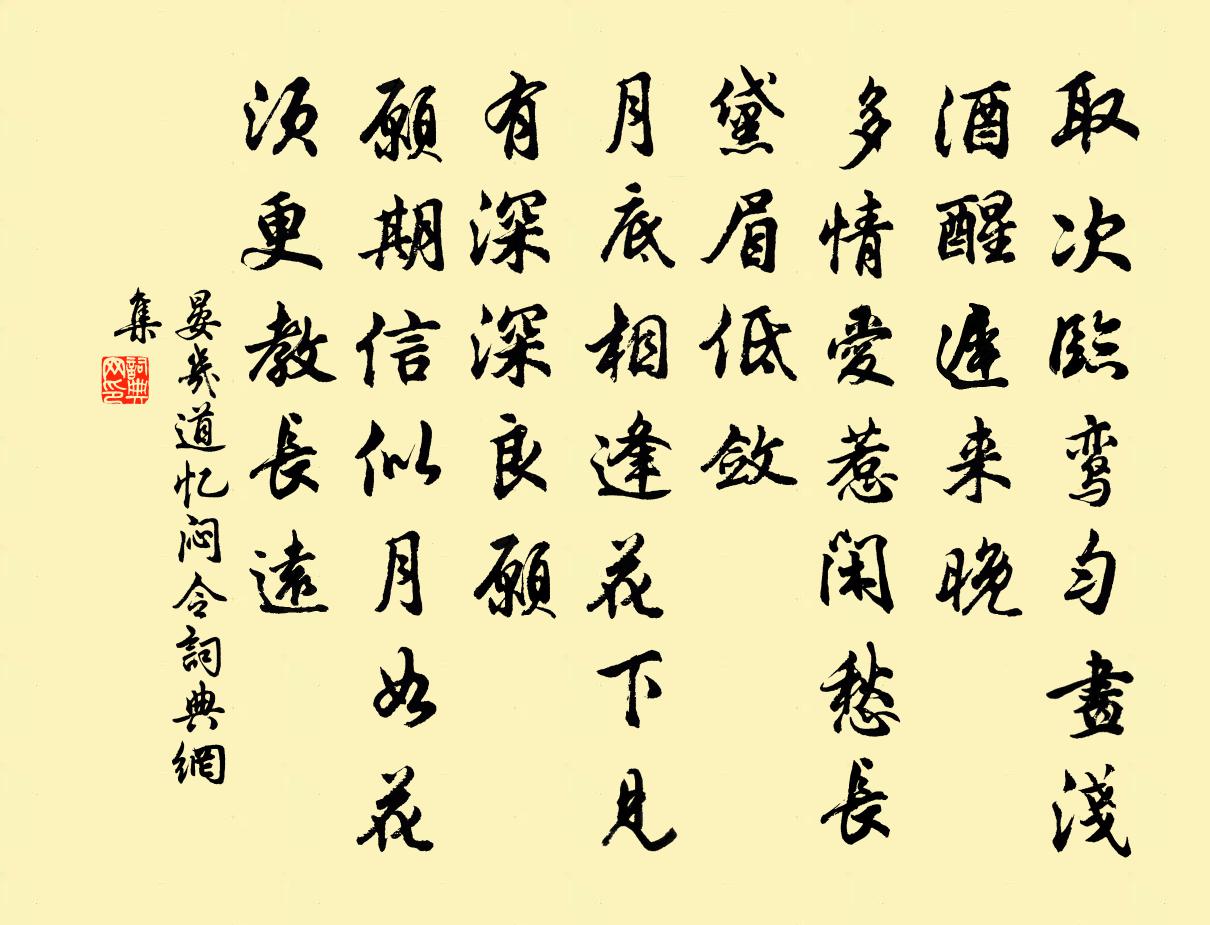 取次臨鸞匀畫淺
酒醒遲来晚
多情愛惹閑愁長
黛眉低斂
月底相逢花下見
有深深良願
願期信似月如花
須更教長遠
晏幾道忆闷令詞典網
集
詞典
网印